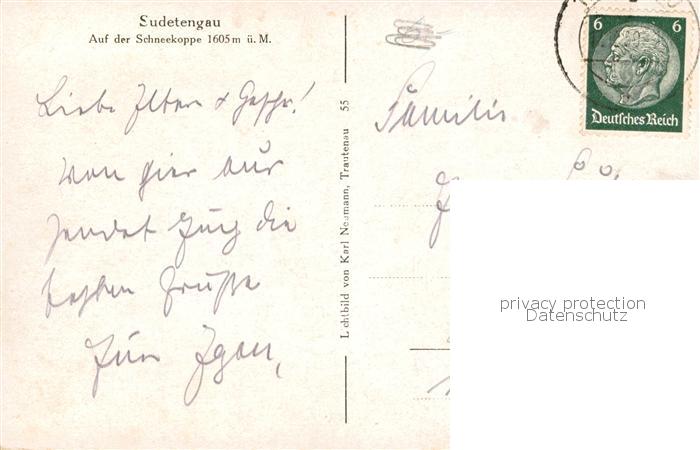 Sudetengau
Auf der Schneekoppe 1605 m ü. M.
Liebe Eltern & Geschw!
Von hier aus
sendet Euch die
besten Grüße
Euer Egon,
Lichtbild von Karl Neumann, Trautenau 55
6 6
Deutsches Reich
Familie
privacy protection
Datenschutz